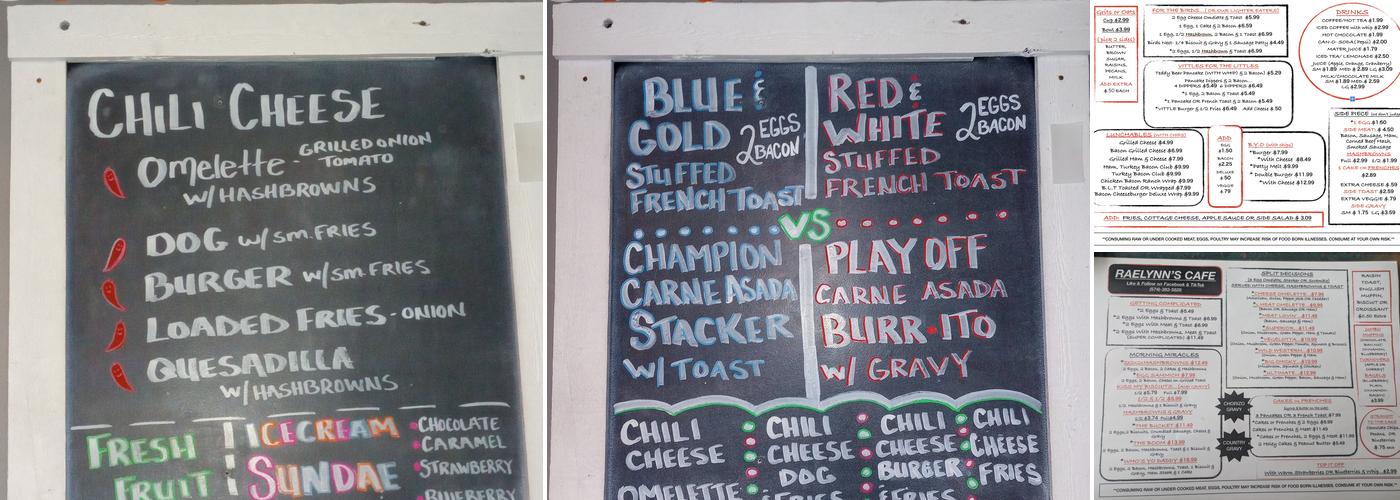 CHILI CHEESE
Omelette - GRILLED ONION
TOMATO
W/HASHBROWNS
DOG w/sm. FRIES
BURGER w/sm FRIES
LOADED FRIES - ONION
QUESADILLA
W/HASHBROWNS
FRESH
FRUIT
ICECREAM
SUNDAE
CHOCOLATE
CARAMEL
STRAWBERRY
BLUEBERRY
BLUE &
GOLD
2 EGGS
2 BACON
STUFFED
FRENCH TOAST
RED &
WHITE
2 EGGS
2 BACON
STUFFED
FRENCH TOAST
VS
CHAMPION
CARNE ASADA
STACKER
W/TOAST
PLAY OFF
CARNE ASADA
BURR-ITO
W/ GRAVY
CHILI
CHEESE
OMELETTE
CHILI
CHEESE
DOG
&FRIES
CHILI
CHEESE
BURGER
&FRIES
CHILI
CHEESE
FRIES
Grits or Oats
Cup $2.99
Bowl $3.99
(pick 2 sides)
BUTTER,
BROWN
SUGAR,
RAISINS,
PECANS,
MILK
ADD EXTRA
$.50 EACH
FOR THE BIRDS... (OR OUR LIGHTER EATERS)
2 Egg Cheese Omelette & Toast $5.99
1 Egg, 1 Cake & 2 Bacon $6.59
1 Egg, 1/2 Hashbrown, 2 Bacon 1/2 & 1 Toast $6.99
Birds Nest- 1/4 Biscuit & Gravy & 1 Sausage Patty $4.49
*2 Eggs, 1/2 Hashbrown & Toast $6.99
VITTLES FOR THE LITTLES
Teddy Bear Pancake (WITH WHIP) & 2 Bacon) $5.29
Pancake Dippers & 2 Bacon...
4 DIPPERS $5.49 6 DIPPERS $6.49
*1 Egg, 2 Bacon & Toast $5.49
*1 Pancake OR French Toast & 2 Bacon $5.49
*VITTLE Burger & 1/2 Fries $6.49 Add Cheese $.50
DRINKS
COFFEE/HOT TEA $1.99
ICED COFFEE with whip $2.99
HOT CHOCOLATE $1.99
CAN-O-SODA (Pepsi) $2.00
MATER JUICE $1.79
ICED TEA/LEMONADE $2.50
JUICE (Apple, Orange, Cranberry)
SM $1.89 MED $2.89 LG $3.09
MILK/CHOCOLATE MILK
SM $1.89 MED $2.59
LG $2.99
LUNCHABLES (WITH CHIPS)
Grilled Cheese $4.99
Bacon Grilled Cheese $6.99
Grilled Ham & Cheese $7.99
Ham, Turkey Bacon Club $9.99
Turkey Bacon Club $9.99
Chicken Bacon Ranch Wrap $9.99
B.L.T Toasted OR Wrapped $7.99
Bacon Cheeseburger Deluxe Wrap $9.99
ADD
EGG
$1.50
BACON
$2.25
DELUXE
$.50
VEGGIE
$.79
B.Y.O (with chips)
*Burger $7.99
*With Cheese $8.49
*Patty Melt $9.99
*Double Burger $11.99
*With Cheese $12.99
SIDE PIECE
*1 EGG $1.50
SIDE MEAT: $4.50
Bacon, Sausage, Ham,
Corned Beef Hash,
Smoked Sausage
HASHBROWNS
Full $2.99 1/2 $1.99
1 CAKE OR FRENCHIES
$2.89
EXTRA CHEESE $.59
SIDE TOAST $2.59
EXTRA VEGGIE $.79
SIDE GRAVY
SM $1.75 LG $3.50
ADD: FRIES, COTTAGE CHEESE, APPLE SAUCE OR SIDE SALAD $ 3.09
**CONSUMING RAW OR UNDER COOKED MEAT, EGGS, POULTRY MAY INCREASE RISK OF FOOD BORN ILLNESSES, CONSUME AT YOUR OWN RISK!
RAELYNN'S CAFE
Like & Follow on Facebook & TikTok
GETTING COMPLICATED
*2 Eggs & Toast $5.49
*2 Eggs With Hashbrowns & Toast $6.99
*2 Eggs With Meat & Toast $6.99
*2 Eggs With Hashbrowns, Meat & Toast
(SUPER COMPLICATED) $11.49
MORNING MIRACLES
*EGG SAMMICH $7.99
2 Eggs, 2 Bacon, Cheese on Grilled Toast
HASHBROWNS & GRAVY
*THE BUCKET $11.49
*THE BOOM $13.99
*WHO'S YO DADDY
SPLIT DECISIONS
SERVED WITH CHEESE, HASHBROWNS & TOAST
*CHEESE OMELETTE
*MEAT LOVIN'
(Bacon, Sausage & Ham)
*SUPERIOR
*VEGELOTTA
*WILD WESTERN
(Onion, Green Pepper, Ham)
*BIG CHICKY
(Mushroom, Spinach & Chicken)
*ULTIMATE
CHORIZO
GRAVY
COUNTRY
GRAVY
CAKES OR FRENCHES
2 Pancakes OR 2 French Toast $7.99
*Cakes or Frenches & 2 Eggs $9.99
Cakes or Frenches & Meat $11.49
*Cakes or Frenches, 2 Eggs & Meat $11.99
2 Holey Cakes & Peanut Butter $8.49
TOP IT OFF
With Warm Strawberries OR Blueberries & Whip
RAISIN
TOAST,
ENGLISH
MUFFIN,
BISCUIT OR
CROISSANT
JUMBO
MUFFINS
**CONSUMING RAW OR UNDER COOKED MEAT, EGGS, POULTRY MAY INCREASE RISK OF FOOD BORN ILLNESSES, CONSUME AT YOUR OWN RISK!